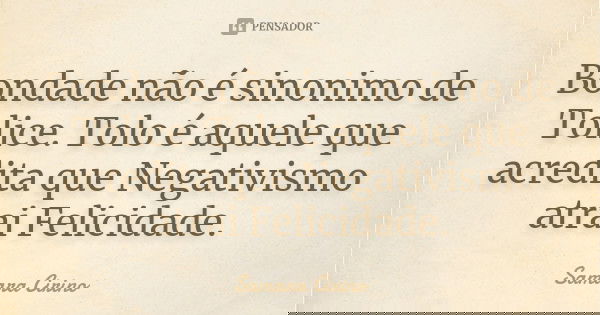 PENSADOR
Bondade não é sinonimo de
Tolice. Tolo é aquele que
acredita que Negativismo
atrai Felicidade.
Samara Cirino